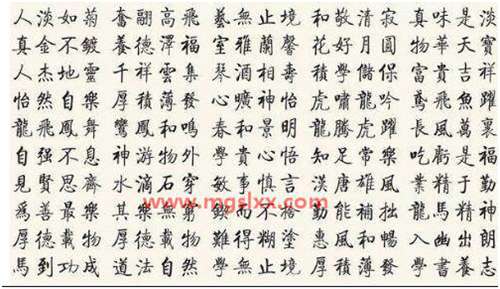 人淡如菊 奮翮高飛 藝無止境 和敬清寂 真味是淡
真金不鍍 養德澤福 室雅蘭馨 花好月圓 物華天寶
人杰地靈 千祥雲集 琴酒相壽 學儲保 富貴吉祥
怡然自樂 厚積薄發 心曠神怡 虎嘯龍吟 鳶飛魚躍
龍飛鳳舞 鸞鳳和鳴 春和景明 龍騰虎躍 長風萬裏
自强不息 神游物外 學貴心悟 知足常樂 吃虧是福
見賢思齊 水滴石穿 敏事慎言 漢唐雄風 業精于勤
www.mgslxx.com
爲善最樂 其樂無窮 鍥而不捨 勤能補拙 龍馬精神
厚德載物 厚德載物 難得糊塗 惠風和暢 入幽出朗
馬到功成 道法自然 學無止境 厚積薄發 學書養志